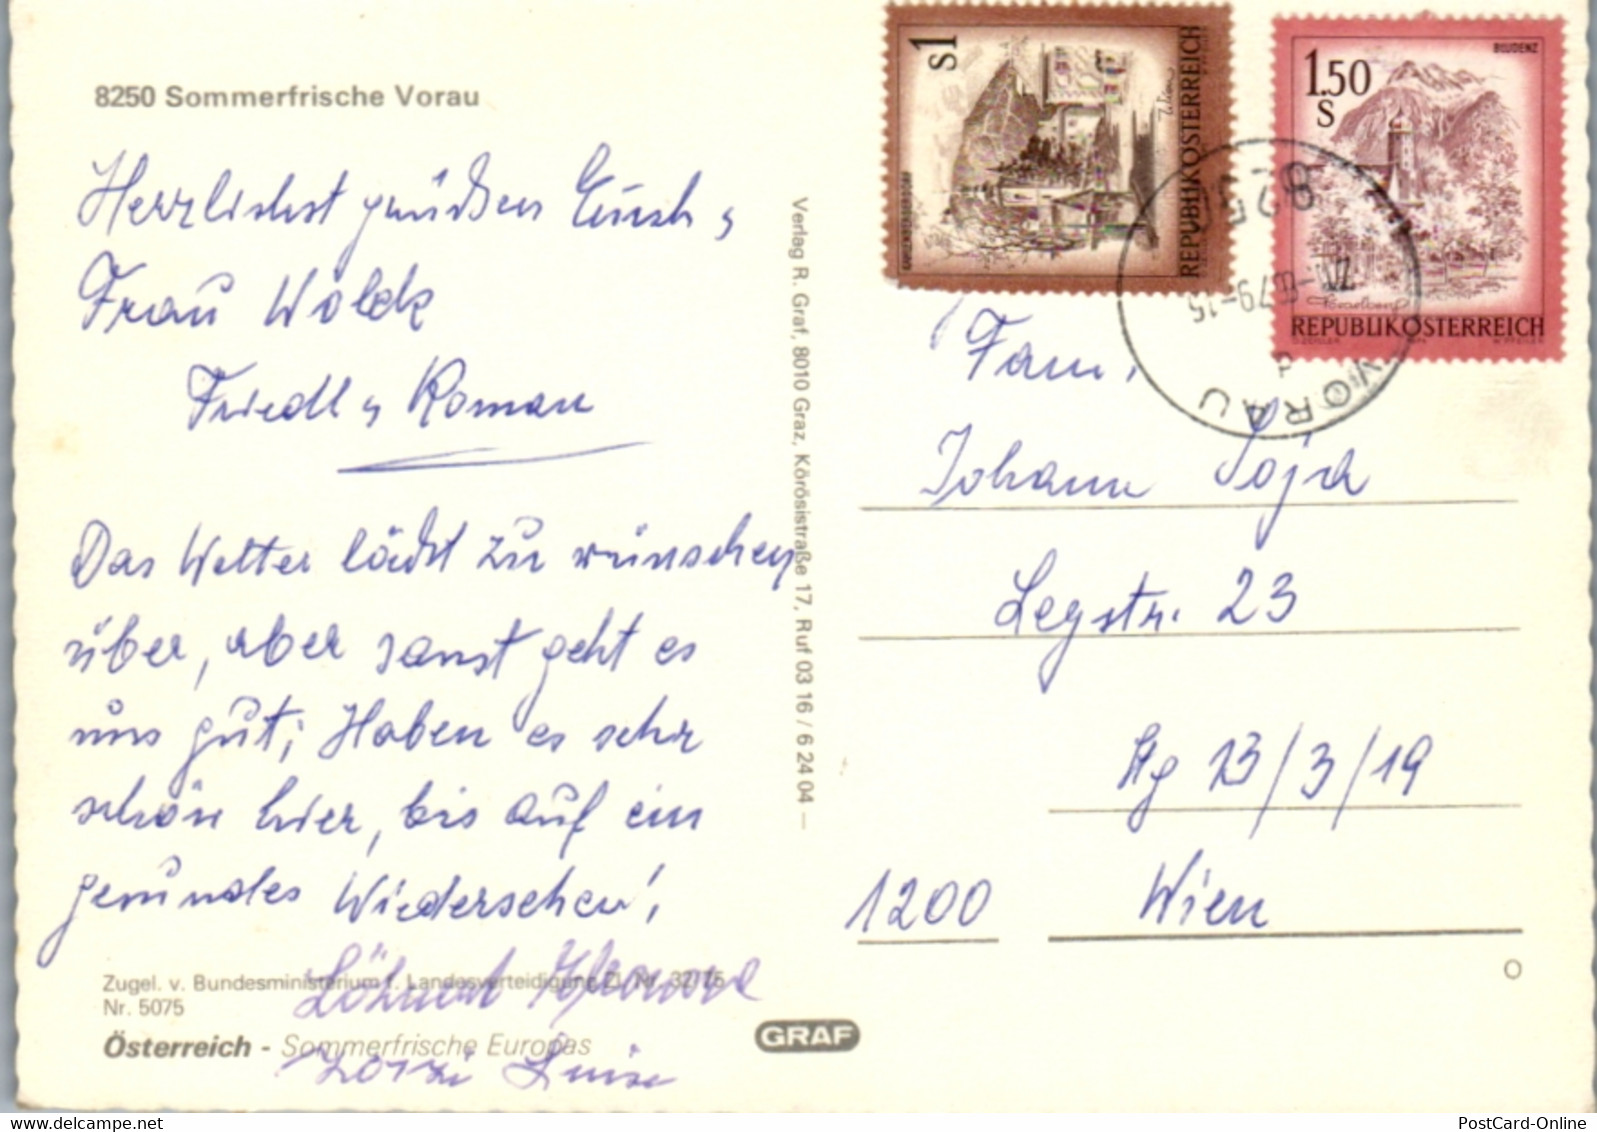 8250 Sommerfrische Vorau
Herrlichst grüßen Euch,
Frau Wolek
Friedl, Roman
Das Wetter läßt zu wünschen
über, aber sonst geht es
uns gut; Haben es sehr
schön hier, bis auf ein
gesundes Wiedersehen!
Luise
Zugel. v. Bundesministerium f. Landesverteidigung Zl. Nr. 32/75
Nr. 5075
Österreich - Sommerfrische Europas
Verlag R. Graf, 8010 Graz, Körösistraße 17, Ruf 03 16 / 6 24 04 —
GRAF
S1
REPUBLIK ÖSTERREICH
1.50
S
BLUDENZ
Vorarlberg
REPUBLIK ÖSTERREICH
8250
VORAU
Fam.
Johann Sojd
Legstr. 23
23/3/19
1200 Wien
PostCard-Online
www.delcampe.net